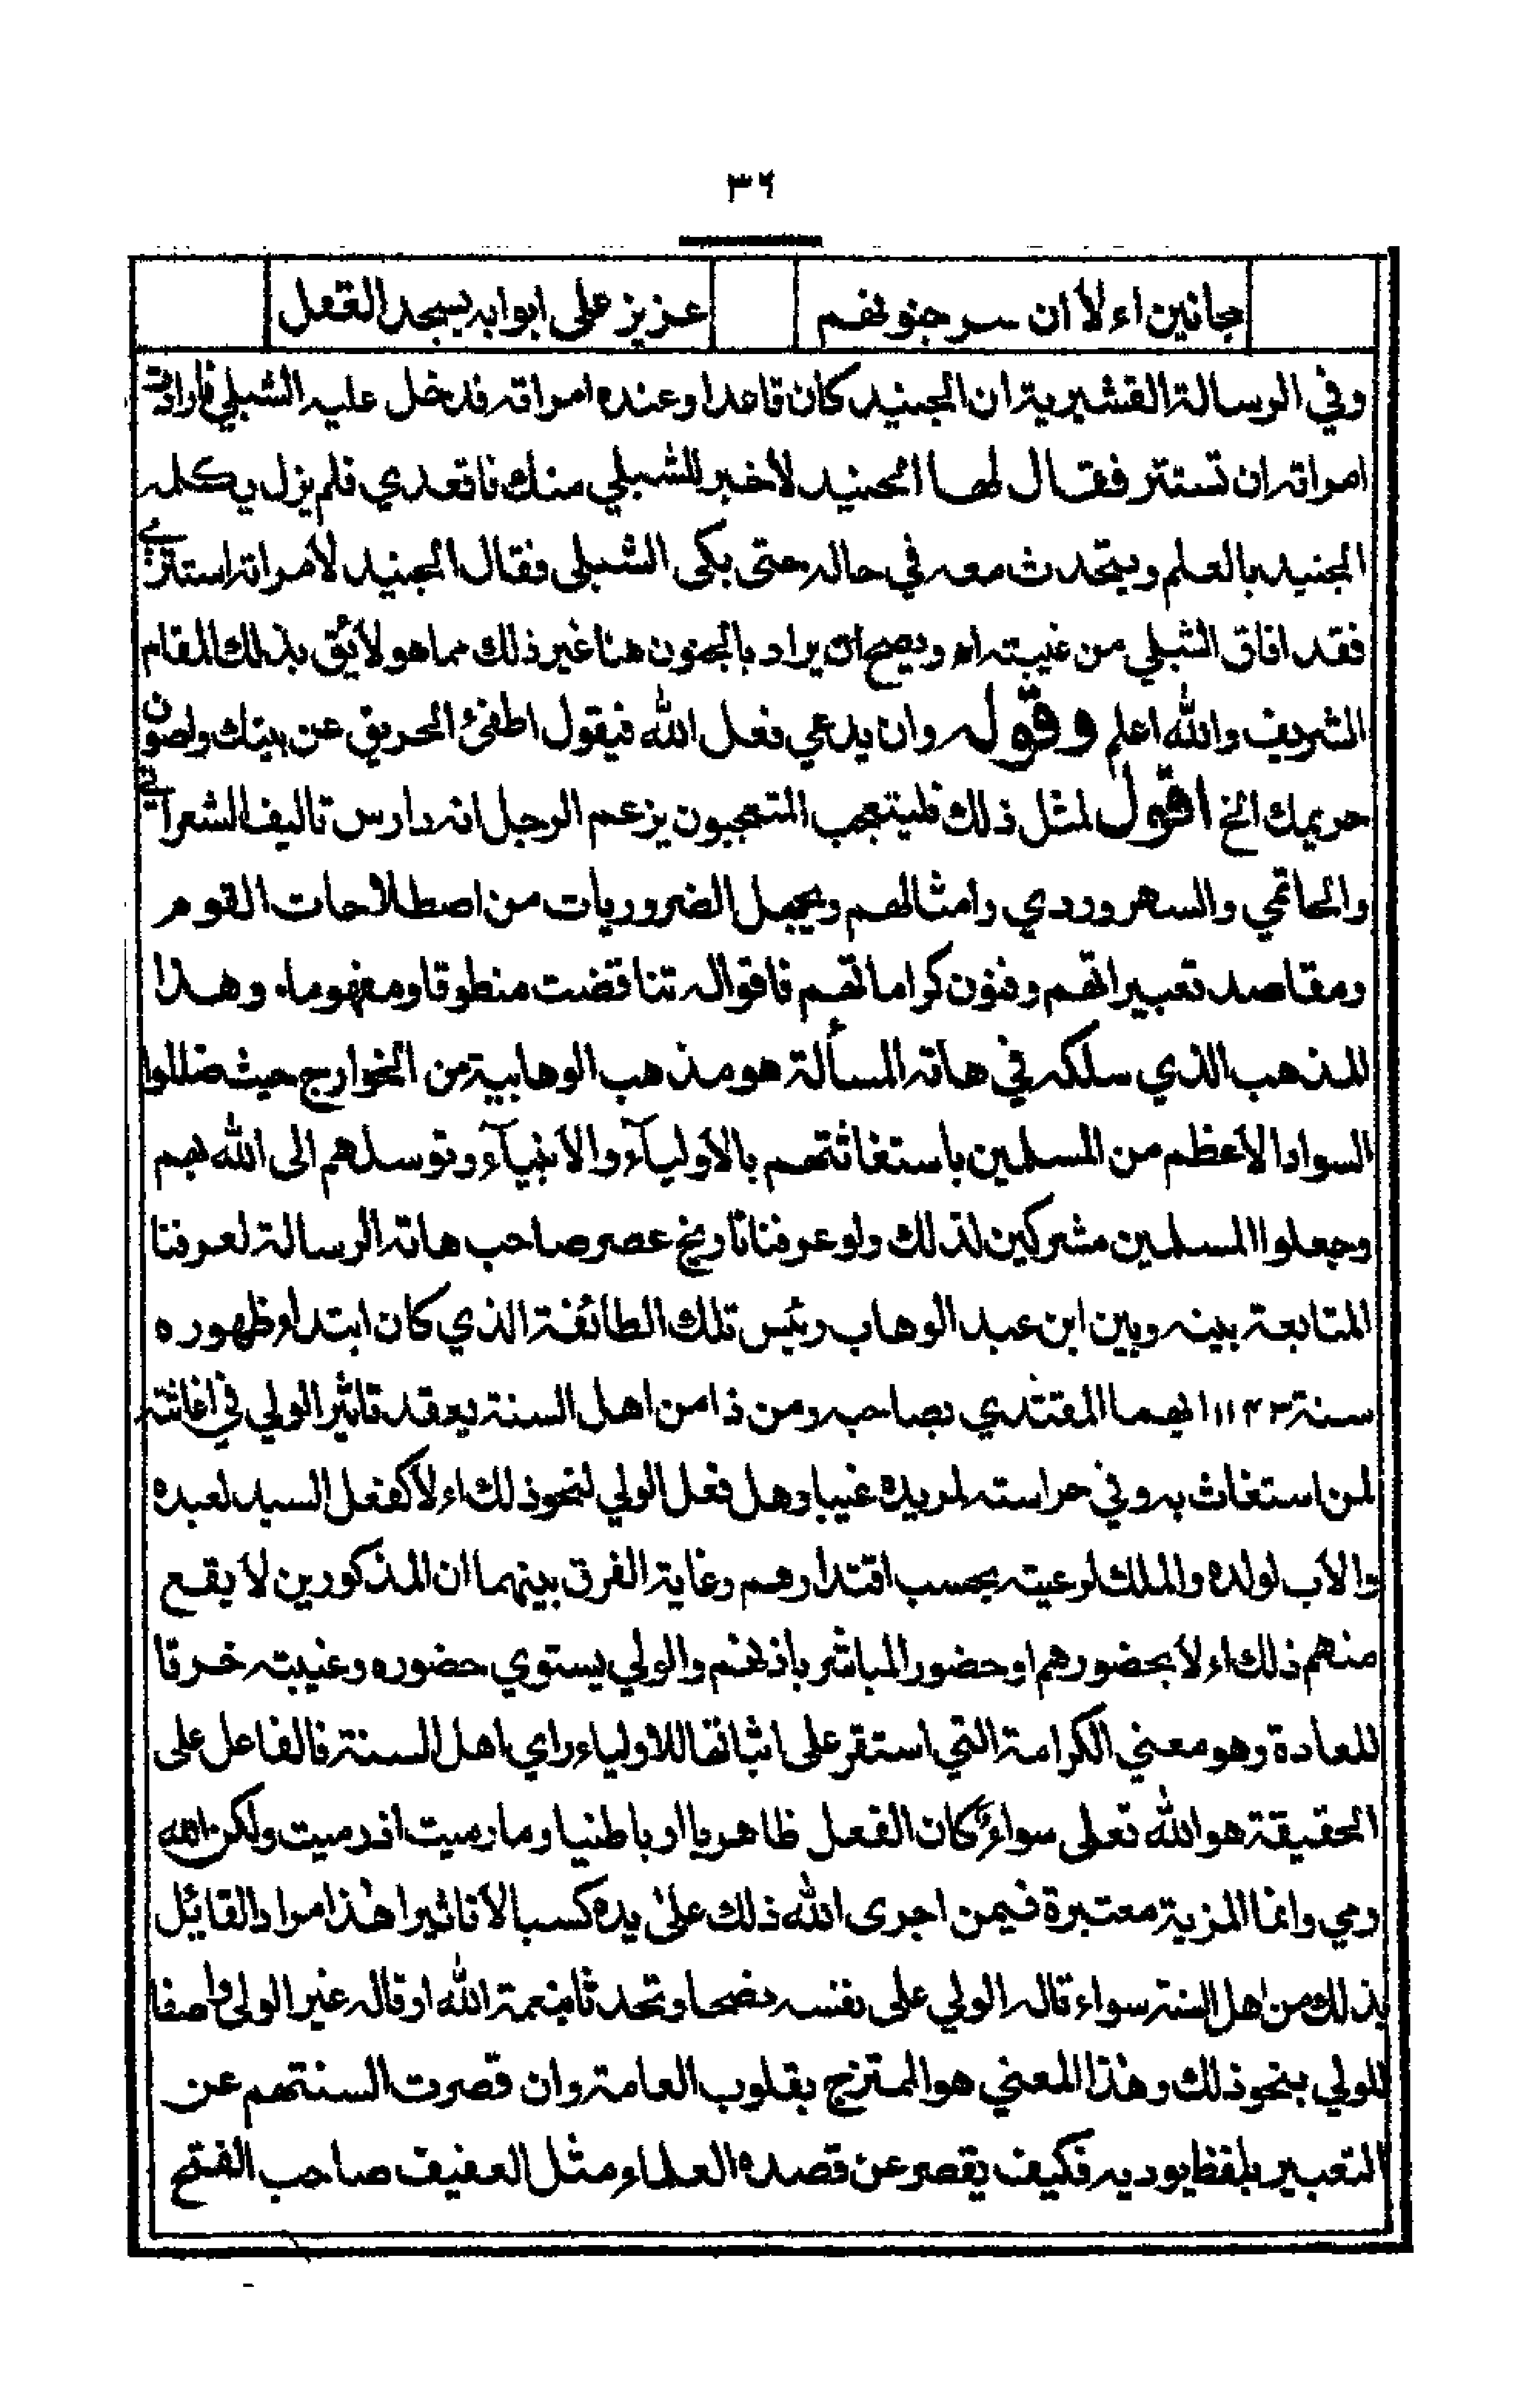 ٣٦
مجانين اءلا ان سر جنونهم عزيز على ابوابه يسجد العقل
وفي الرسالة القشيرية ان الجنيد كان قاعدا وعنده امراته فدخل عليه الشبلي فارادت
امراته ان تستتر فقال لها الجنيد لاخبر للشبلي منك فاقعدي فلم يزل يكلمه
الجنيد بالعلم ويتحدث معه في حاله حتى بكى الشبلي فقال الجنيد لامراته استتري
فقد افاق الشبلي من غيبته اه ويصح ان يراد بالجنون هنا غير ذلك مما هو لائق بذلك المقام
الشريف والله اعلم وقوله وان يدعي فعل الله فيقول اطفئ الحريق عن بيتك واصون
حريمك الخ اقول لمثل ذلك فليتعجب المتعجبون يزعم الرجل انه دارس تاليف الشعراني
والحاتمي والسهروردي وامثالهم ويجهل الضروريات من اصطلاحات القوم
ومقاصد تعبيراتهم وفنون كراماتهم فاقواله تناقضت منطوقا ومفهوما، وهذا
المذهب الذي سلكه في هاته المسألة هو مذهب الوهابية من الخوارج حيث ضللوا
السواد الاعظم من المسلمين باستغاثتهم بالاوليآء والانبيآء وتوسلهم الى الله بهم
وجعلوا المسلمين مشركين لذلك ولو عرفنا تاريخ عصر صاحب هاته الرسالة لعرفنا
المتابعة بينه وبين ابن عبد الوهاب رئيس تلك الطائفة الذي كان ابتداء ظهوره
سنة ١١٤٣ ايهما المقتدي بصاحبه ومن ذا من اهل السنة يعقد تاثير الولي في اغاثته
لمن استغاث به وفي حراسته لمريده غيبا وهل فعل الولي لنحو ذلك اءلا كفعل السيد لعبده
والاب لولده والملك لرعيته بحسب اقتدارهم وغاية الفرق بينهما ان المذكورين لا يقع
منهم ذلك اءلا بحضورهم او حضور المباشر باذنهم والولي يستوي حضوره وغيبته خرقا
للعادة وهو معني الكرامة التي استقر على اثباتها للاولياء راي اهل السنة فالفاعل على
الحقيقة هو الله تعلى سواء كان الفعل ظاهريا او باطنيا وما رميت اذ رميت ولكن الله
رمي وانما المزية معتبرة فيمن اجرى الله ذلك على يده كسبا لا تاثيرا هذا مراد القائل
بذلك من اهل السنة سواء قاله الولي على نفسه نصحا وتحدثا بنعمة الله او قاله غير الولي واصفا
للولي بنحو ذلك وهذا المعني هو الممتزج بقلوب العامة وان قصرت السنتهم عن
التعبير بلفظ يوديه فكيف يقصر عن قصده العلماء مثل العفيف صاحب الفتح